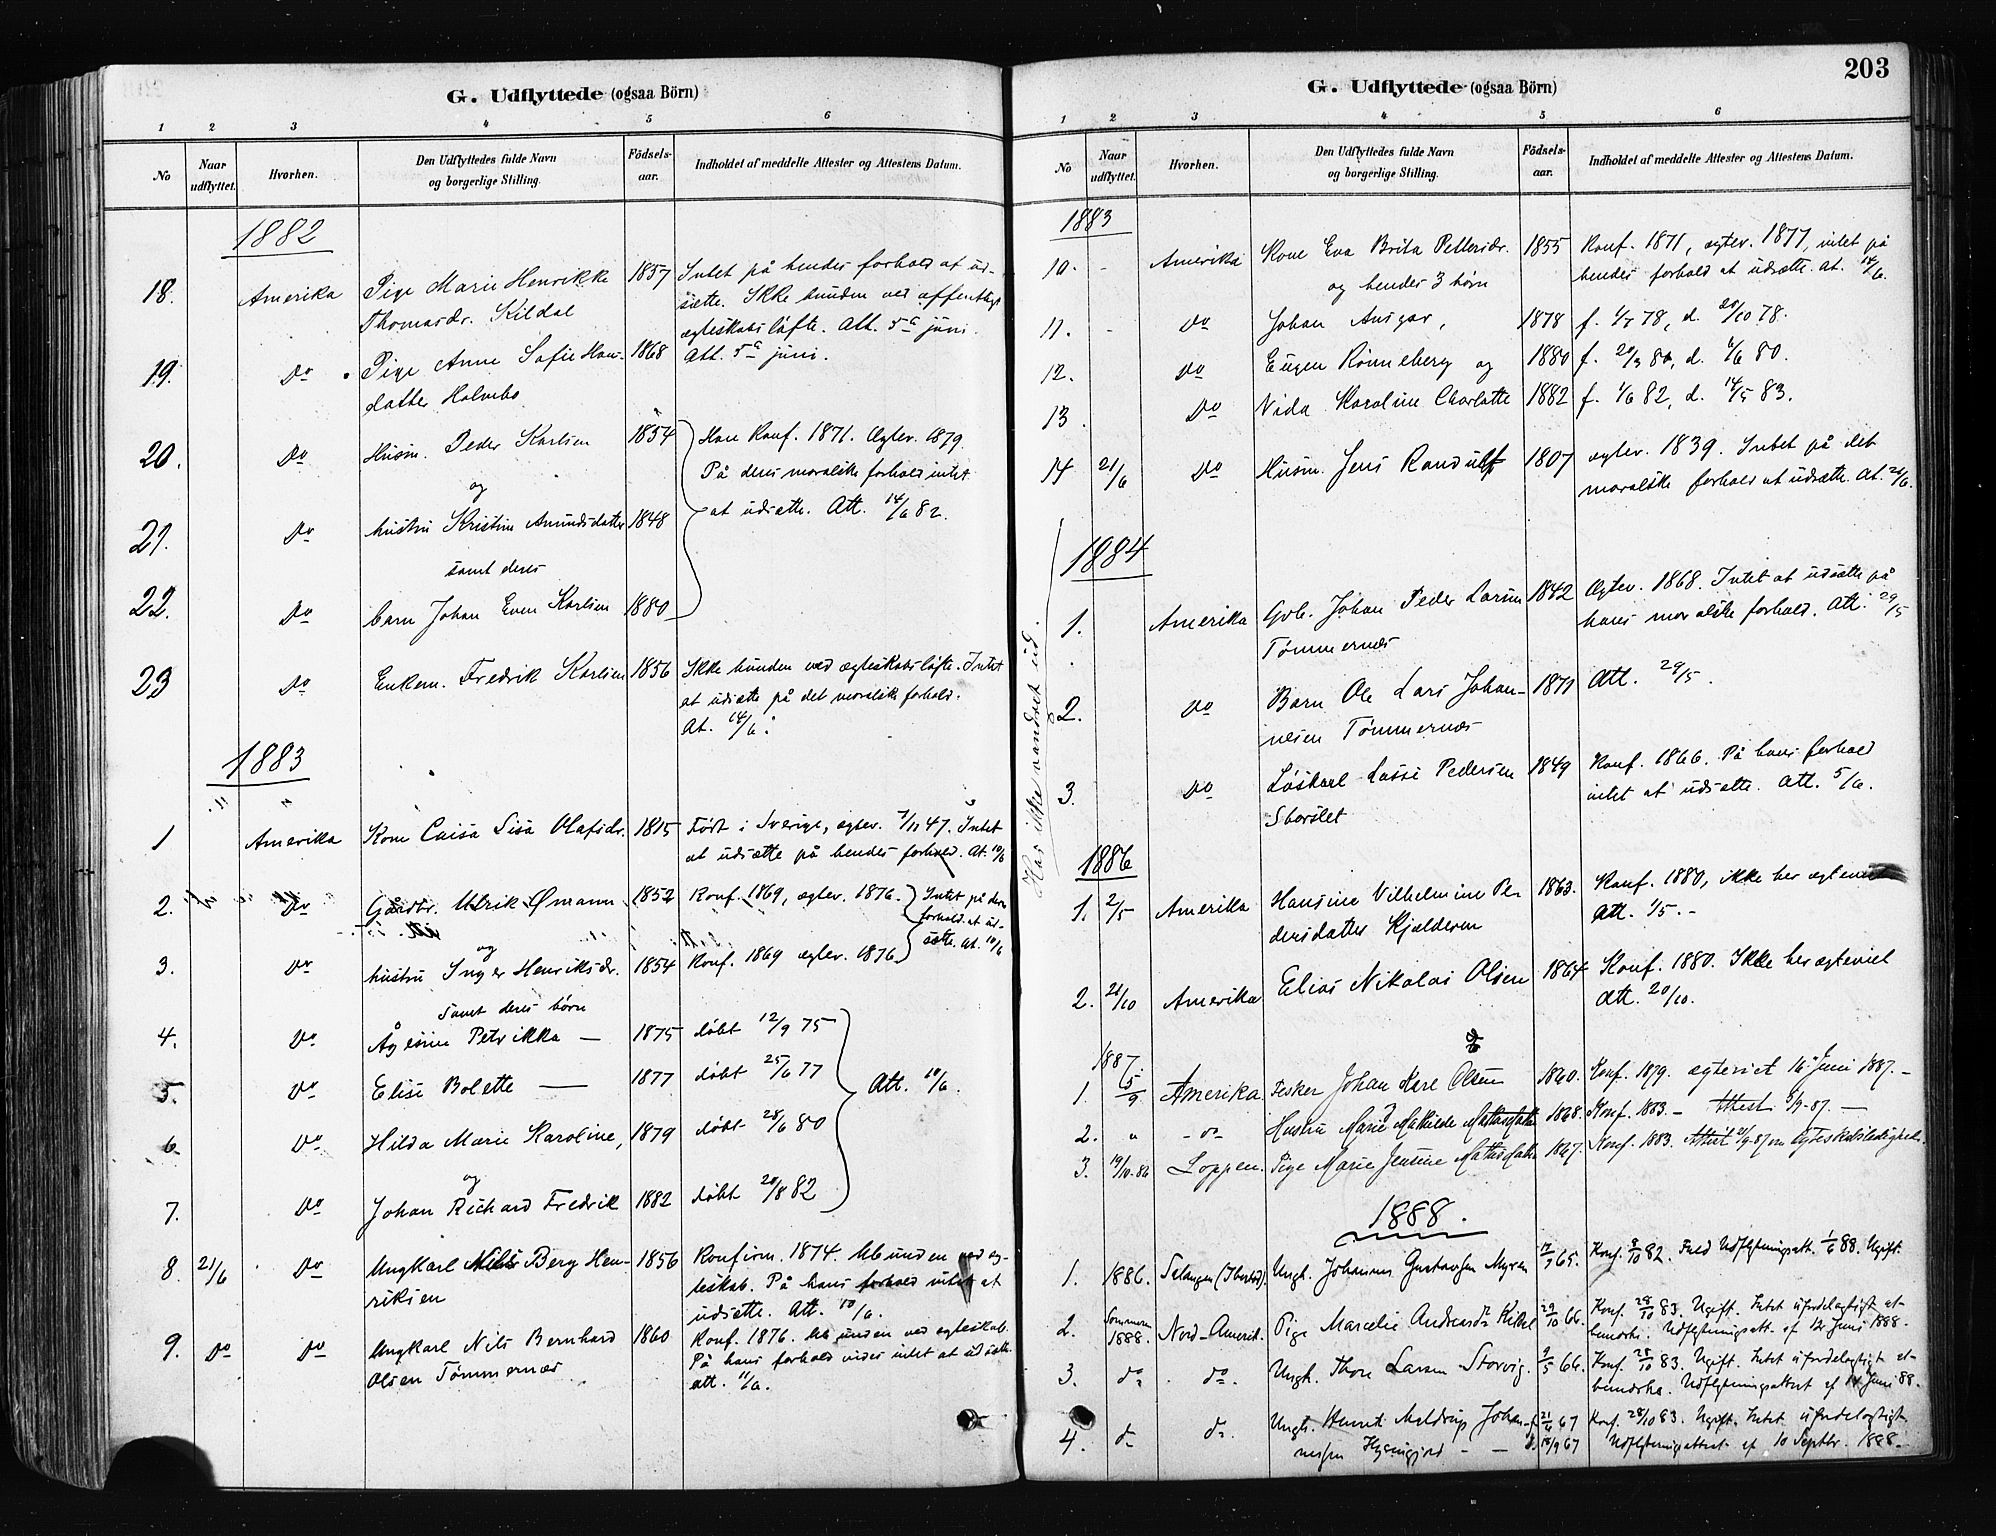 G. Udflyttede (ogsaa Börn)
1 2 3 4 5 6
No
Naar udflyttet.
Hvorhen.
Den Udflyttedes fulde Navn og borgerlige Stilling.
Födsels-aar.
Indholdet af meddelte Attester og Attestens Datum.
1882
18. Amerika Pige Marie Henrikke 1857 Intet på hendes forhold at ud-
Thomasdr. Kildal sætte. Ikke bunden ved offentligt
ægteskabsløfte. Att. 5te juni.
19. Do Pige Anne Sofie Han- 1868 Att. 5te juni.
datter Holmbo
20. Do Husm. Peder Karlsen 1854 Han Konf. 1871. Ægtev. 1879.
og På deres moralske forhold intet
21. Do hustru Kristine Amundsdatter 1848 at udsætte. Att. 14/6 82.
samt deres
22. Do barn Johan Even Karlsen 1880
23 Do Enkem. Fredrik Karlsen 1856 Ikke bunden ved ægteskabsløfte. Intet
at udsætte på det moralske forhold.
At. 14/6.
1883
1 Amerika Kone Caisa Lisa Olafsdr. 1815 Født i Sverige, ægtev. 7/11 47. Intet
at udsætte på hendes forhold. At. 10/6
2. Do Gårdbr. Ulrik Ømann 1852 Konf. 1869, ægtev. 1876. Intet på deres
og forhold at ud-
3. Do hustru Inger Henriksdr. 1854 Konf. 1869 ægtev. 1876. sætte. At. 10/6
samt deres børn
4. Do Ågesine Petrikka — 1875 døbt 12/9 75
5. Do Elise Bolette — 1877 døbt 25/6 77 Att. 10/6.
6 Do Hilda Marie Karoline, 1879 døbt 28/6 80
og
7. Do Johan Richard Fredrik 1882 døbt 20/8 82
8 21/6 Do Ungkarl Nils Berg Hen- 1856 Konfirm. 1874. Ubunden ved æg-
riksen teskab. På hans forhold intet at
udsætte. Att. 10/6.
9. Do Do Ungkarl Nils Bernhard 1860 Konf. 1876. Ubunden ved ægteskab.
Olsen Tømmernæs På hans forhold vides intet at udsætte.
Att. 11/6.
203
G. Udflyttede (ogsaa Börn)
1 2 3 4 5 6
No
Naar udflyttet.
Hvorhen.
Den Udflyttedes fulde Navn og borgerlige Stilling.
Födsels-aar.
Indholdet af meddelte Attester og Attestens Datum.
1883
10. - Amerika Kone Eva Brita Pettersdr. 1855 Konf. 1871, ægtev. 1877, intet på
og hendes 3 børn hendes forhold at udsætte. At. 14/6.
11. - Do Johan Ansgar, 1878 f. 4/5 78, d. 20/10 78.
12. Do Eugen Rønneberg og 1880 f. 20/3 80, d. 6/6 80.
13. Do Vida Karoline Charlotte 1882 f. 1/6 82, d. 14/5 83.
14 21/6 Do Husm. Jens Randulf 1807 ægtev. 1839. Intet på det
moralske forhold at udsætte. At. 21/6.
1884
Har ikke vandret ud.
1. Amerika Gvb. Johan Peder Larsen 1842 Ægtev. 1868. Intet at udsætte på
Tømmernæs hans moralske forhold. Att. 29/5
2. Do Barn Ole Lars Johan- 1871 Att. 29/5.
nesen Tømmernæs
3. Do Løskarl Lasse Pedersen 1849 Konf. 1866. På hans forhold
Storslet intet at udsætte. Att. 5/6.
1886
1. 2/5 Amerika Hansine Vilhelmine Pe- 1863. Konf. 1880, ikke her ægteviet
dersdatter Kjelderen Att. 1/5. -
2. 21/10 Amerika Elias Nikolai Olsen 1864 Konf. 1880. Ikke her ægteviet
Att. 20/10.
1887
1. 5/9 Amerika Fisker Johan Karl Olsen 1860. Konf. 1879. ægteviet 16de Juni 1887. -
2. " - do Hustru Marie Mathilde Mathisdatter 1868. Konf. 1883. - Attest 5/9-87. —
3. 19/10-86 Loppen. Pige Marie Jensine Mathisdatter 1867. Konf. 1883. Attest 21/9-87 om Ægteskabsledighed.
1888.
1. 1886. Salangen (Ibestad). Ungk. Johannes Gustavsen Myren 12/3 65. Konf. 8/10 82. Fuld Udflytningsatt. 1/6 88. Ugift.
2. Sommeren 1888. Nord-Amerik. Pige Marcelie Andreasdr 29/10 66. Konf. 28/10 83. Ugift. Intet ufordelagtigt at
bemærke. Udflytningsatt. af 12 Juni 1888.
3. do do. Ungk. Thore Larsen Storvig. 9/5 66. Konf. 28/10 83. Ugift. Intet ufordelagtigt at
bemærke. Udflytningsattest af 14 Juni 88.
4. do do. Ungk. Henrik Meldrup Johan- f. 21/6 67 Konf. 28/10 83. Ugift. Intet ufordelagtigt.
nessen - — d. 19/9 67 Udflytningsattest af 10 Septbr. 1888.